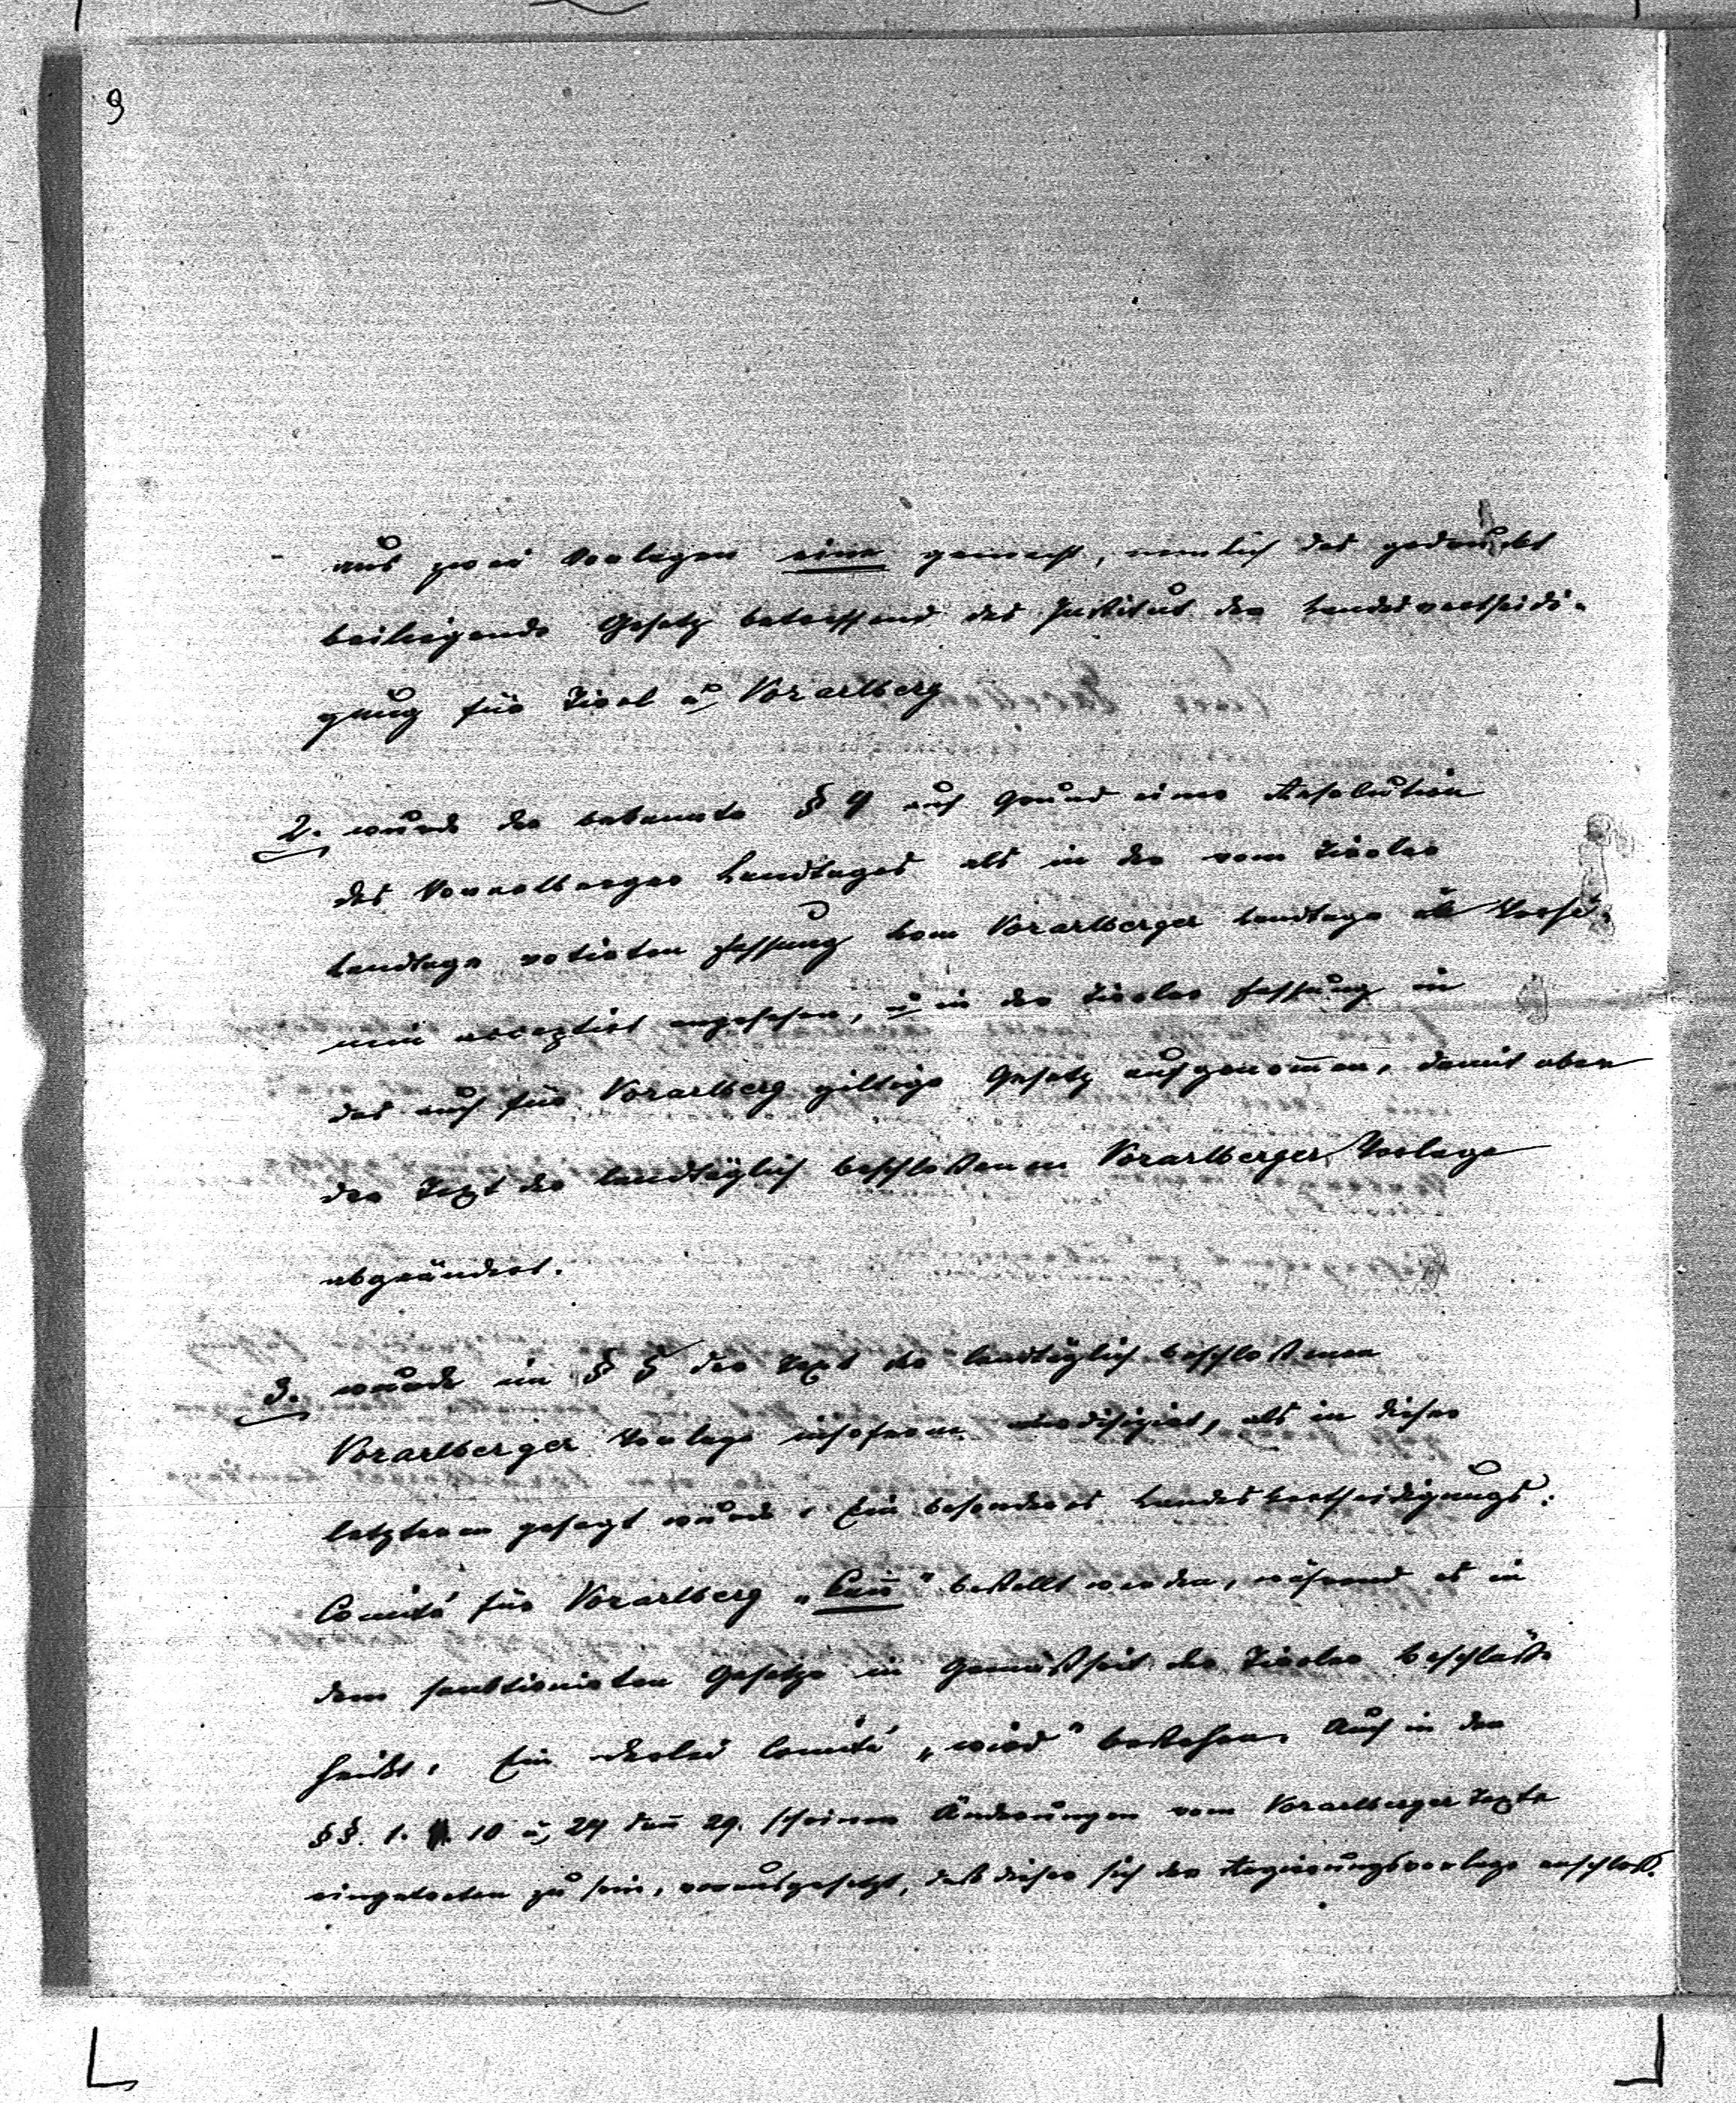 aus zwei Vorlagen eine gemacht, nemlich das gedruckt
beiliegende Gesetz betreffend das Institut der Landesvertheidi-
gung für Tirol u Vorarlberg
2. wurde der bekannte § 4 auf Grund einer Resolution
des Vorarlberger Landtages als in der vom Tiroler
Landtage votirten Fassung vom Vorarlberger Landtage
acceptirt angesehen, u in der Tiroler Fassung in
das auch für Vorarlberg giltige Gesetz aufgenom̅en, damit aber
der Text der landtäglich beschloßenen Vorarlberger Vorlage
abgeändert.
3. wurde im § 5 der Text der landtäglich beschloßenen
Vorarlberger Vorlage insoferne modifizirt, als in dieser
letzteren gesagt wurde: Ein besonderes Landesvertheidigungs-
Comité für Vorarlberg „kan̅" bestellt werden, während es in
dem sanktionirten Gesetze in Gemäßheit der Tiroler Beschlüße
heißt: Ein derlei Comité „wird" bestehen. Auch in den
§§. 1. 10 u 24 dan̅ 29. scheinen Änderungen vom Vorarlberger Texte
eingetreten zu sein, vorausgesetzt, daß dieser sich der Regierungsvorlage anschloß.